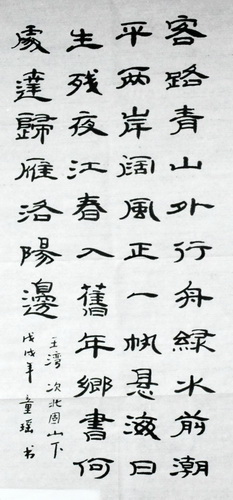 客路青山外行舟綠水前潮
平两岸阔風正一帆悬海日
生残夜江春入舊年鄉書何
處達歸雁洛陽邊
王湾 次北固山下
戊戌年 童瑶 书